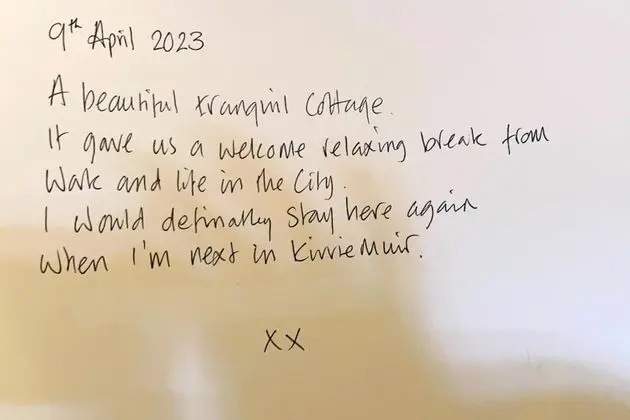 9th April 2023
A beautiful tranquil Cottage.
It gave us a welcome relaxing break from
Work and life in the City.
I would definatly stay here again
When I'm next in Kirriemuir.
xx